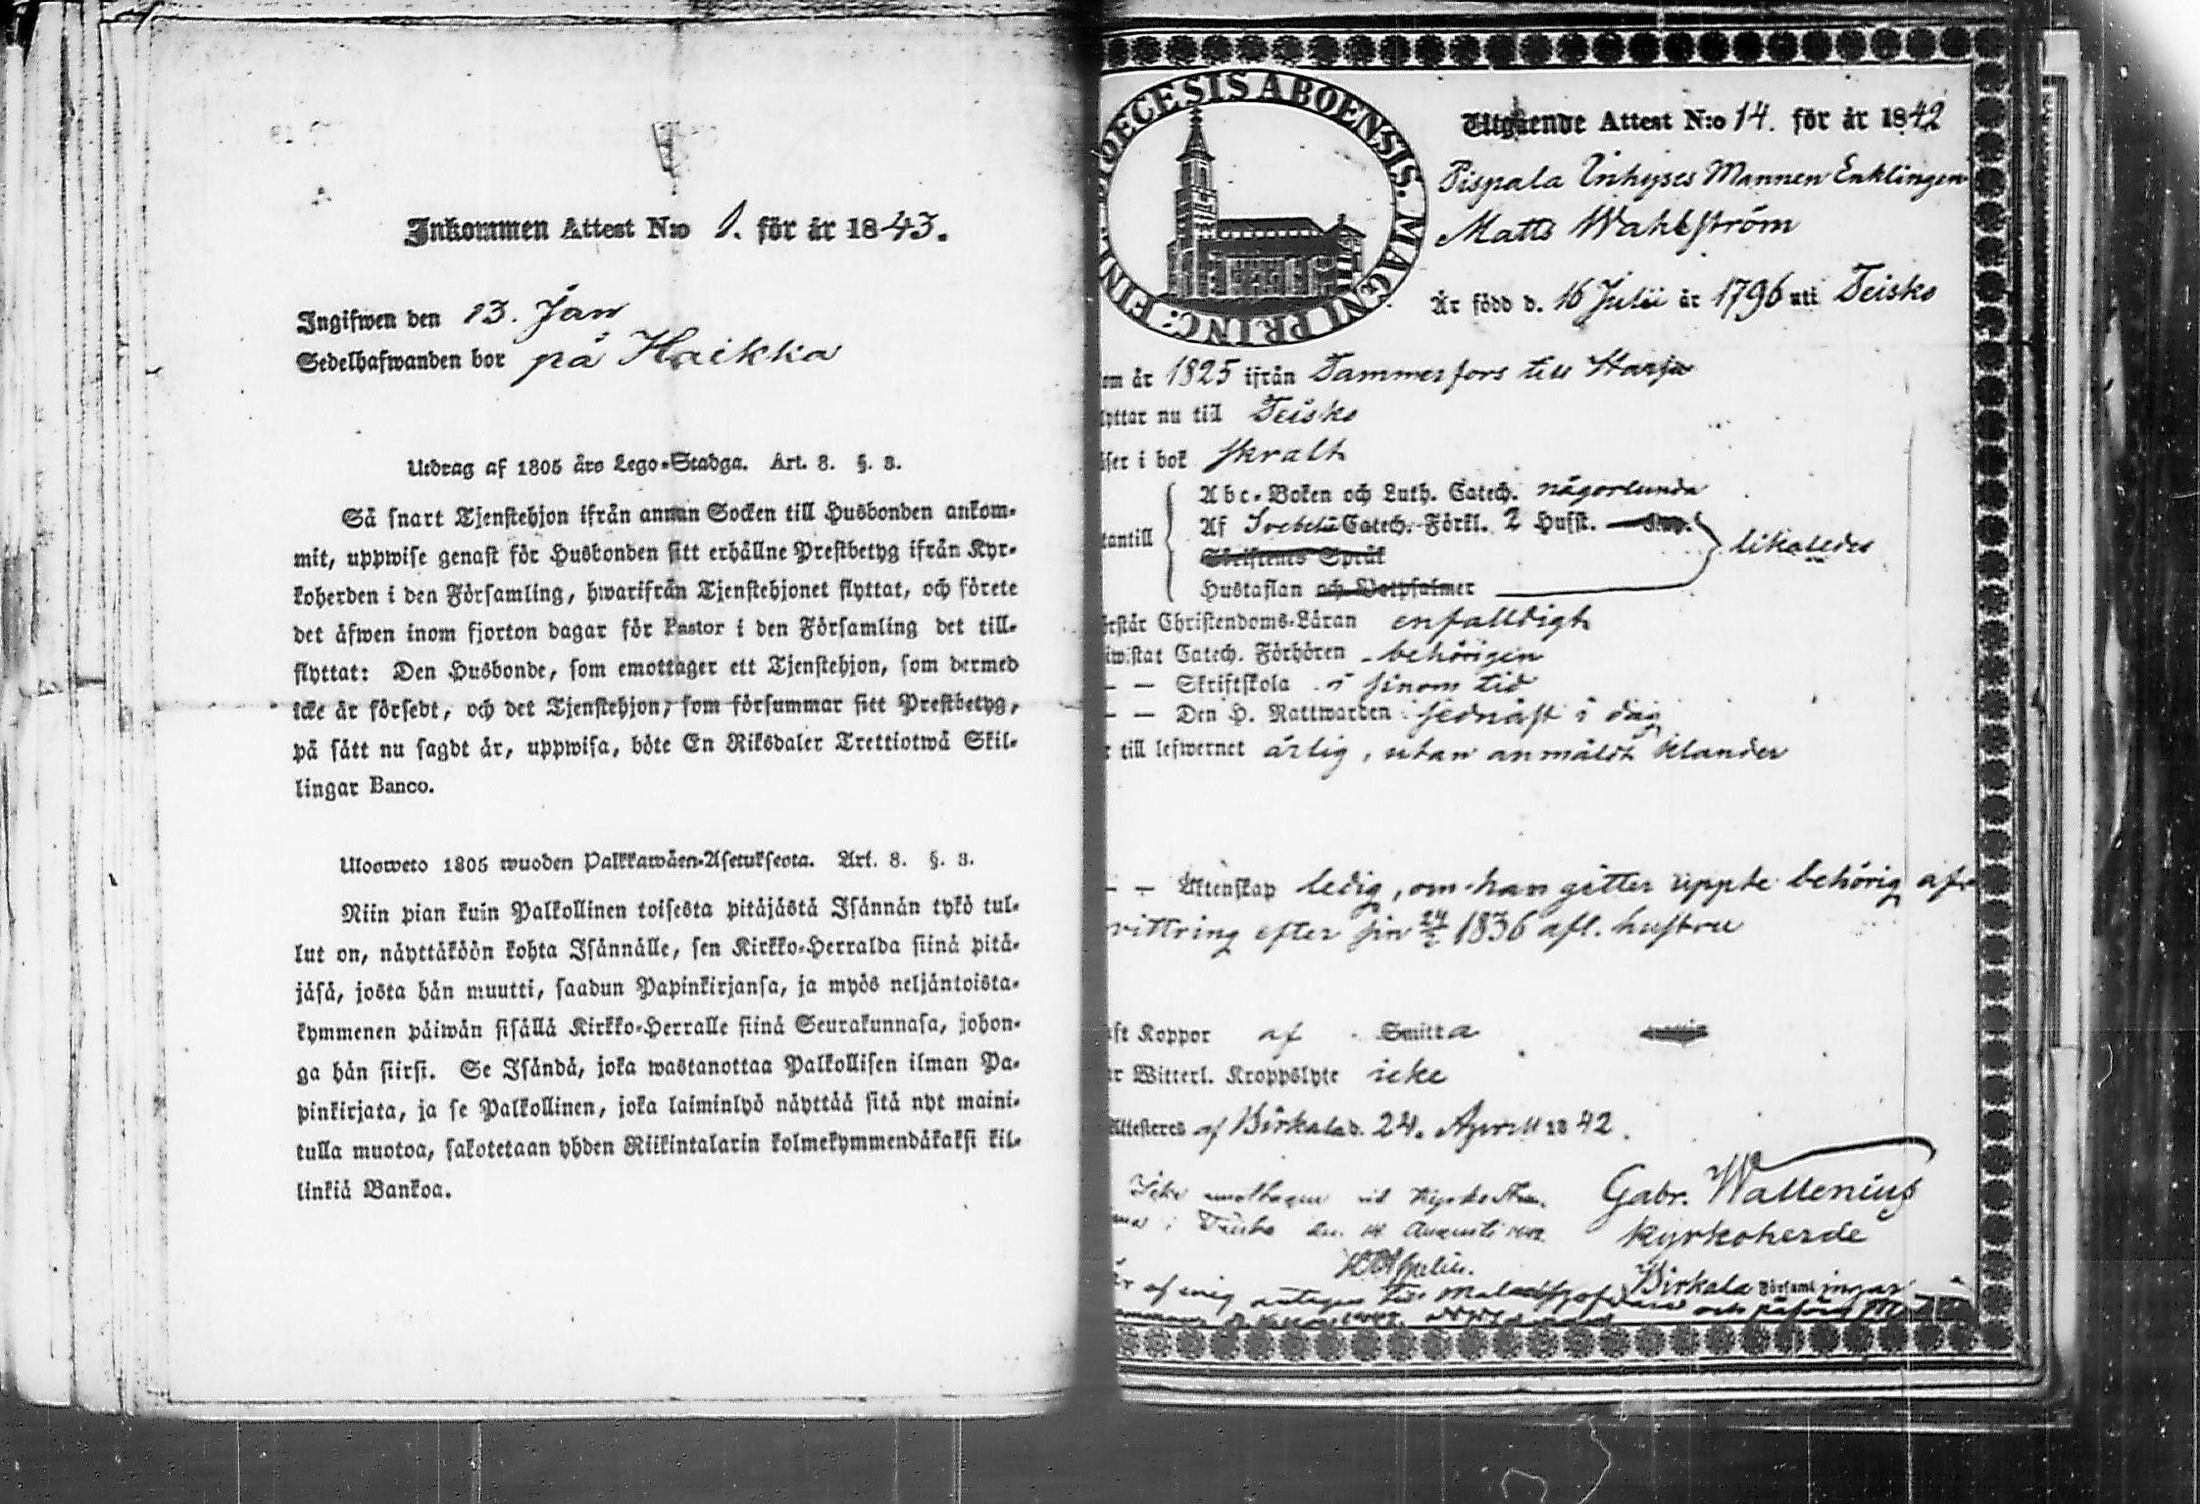 Inkommen Attest N:o 1. för år 1843.
Ingifwen den 13. Jan
Sedelhafwanden bor på Haikka
Utdrag af 1805 års Lego-Stadga. Art. 8. §. 3.
Så snart Tjenstehjon ifrån annan Socken till Husbonden ankom-
mit, uppwise genast för Husbonden sitt erhållne Prestbetyg ifrån Kyr-
koherden i den Församling, hwarifrån Tjenstehjonet flyttat, och förete
det äfwen inom fjorton dagar för Pastor i den Församling det till-
flyttat: Den Husbonde, som emottager ett Tjenstehjon, som dermed
icke är försedt, och det Tjenstehjon, som försummar sitt Prestbetyg,
på sätt nu sagdt är, uppwisa, böte En Riksdaler Trettiotwå Skil-
lingar Banco.
Ulosweto 1805 wuoden Palkkawäen-Asetuksesta. Art. 8. §. 3.
Niin pian kuin Palkollinen toisesta pitäjästä Isännän tykö tul-
lut on, näyttäköön kohta Isännälle, sen Kirkko-Herralda siinä pitä-
jäsä, josta hän muutti, saadun Papinkirjansa, ja myös neljäntoista-
kymmenen päiwän sisällä Kirkko-Herralle siinä Seurakunnasa, johon-
ga hän siirsi. Se Isändä, joka wastanottaa Palkollisen ilman Pa-
pinkirjata, ja se Palkollinen, joka laiminlyö näyttää sitä nyt maini-
tulla muotoa, sakotetaan yhden Riikintalarin kolmekymmendäkaksi kil-
linkiä Bankoa.
DIOECESIS ABOENSIS. MAGNI PRINC: FINL.
Utgående Attest N:o 14. för år 1842
Pispala Inhyses Mannen Enklingen
Matts Wahlström
Är född d. 16 Julii år 1796 uti Teisko
om år 1825 ifrån Tammerfors till Harju
lyttar nu till Teisko
äser i bok skralt
Abc-Boken och Luth. Catech. någorlunda
tantill Af Svebelii Catech. Förkl. 2 Hufst.
Hustaflan och Botpsalmer likaledes
örstår Christendoms-Läran enfalldigt
iwistat Catech. Förhören behörigen
– – Skriftskola i sinom tid
– – Den H. Nattwarden sednast i dag
r till lefwernet ärlig, utan anmäldt klander
– – Äktenskap ledig, om han gitter uppte behörig af-
vittring efter sin 1836 afl. hustru
aft Koppor af Smitta
ar Witterl. Kroppslyte icke
Attesteres af Birkala d. 24. April 1842.
Gabr. Wallenius
Kyrkoherde
i Teisko den 14 Augusti 1842
Birkala Församlingar